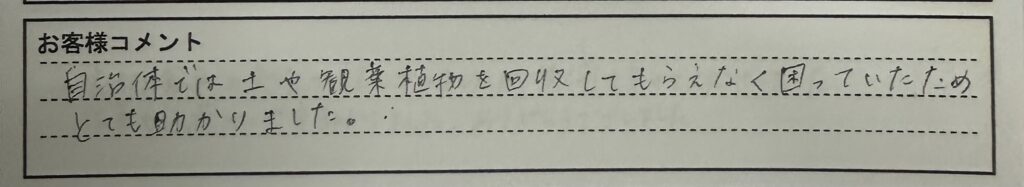 お客様コメント
自治体では土や観葉植物を回収してもらえなく困っていたため
とても助かりました。